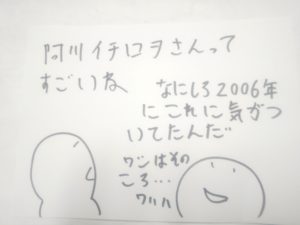 阿川イチロヲさんって
すごいね
なにしろ2006年
にこれに気がつ
いてたんだ
ワシはその
ころ…
ワハハ